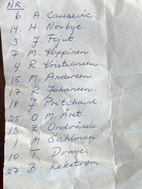 NR.
6 A Causevic
14 H Norbye
3 J Fojut
7 M Koppinen
4 R Kristiansen
15 M Andersen
17 R Johansen
18 J Pritchard
25 O M Ant
13 Z Ondrášek
1 M Sahlman
10 T Drage
27 B Kekström